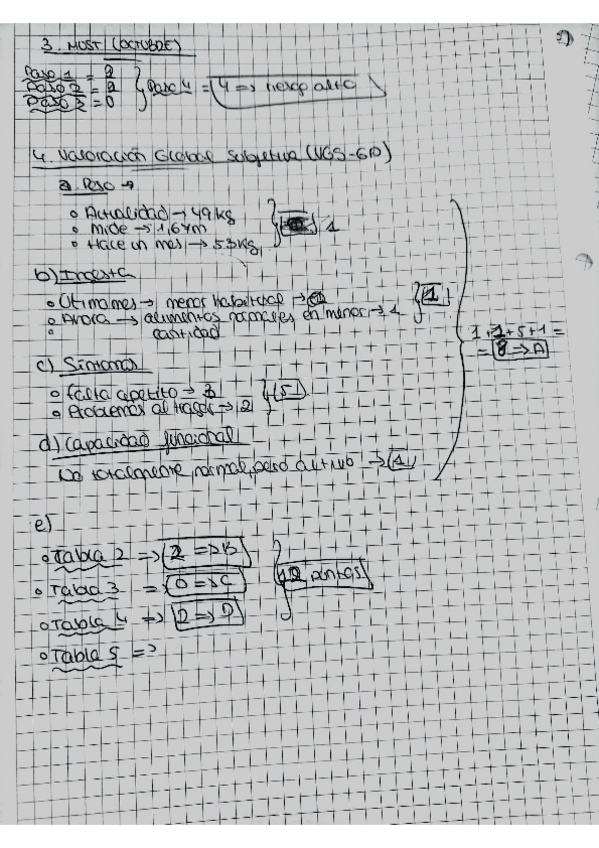 3. MUST (OCTUBRE)
Paso 1 = 2
Paso 2 = 2
Paso 3 = 0
Paso 4 = 4 => riesgo alto
4. Valoración Global Subjetiva (VGS-GP)
a. Peso →
Actualidad → 49 kg
mide → 1,67m
Hace un mes → 53 kg
1
b) Ingesta
Último mes → menor habitual →
Ahora → alimentos normales en menor → 1
cantidad
1
c) Síntomas
falta apetito → 3
Problemas al tragar → 2
5
d) Capacidad funcional
No totalmente normal, pero activo → 1
1 + 1 + 5 + 1 =
= 8 => A
e)
Tabla 2 => 2 => B
Tabla 3 = 0 => C
Tabla 4 => 2 => D
Tabla 5 =>
12 puntos